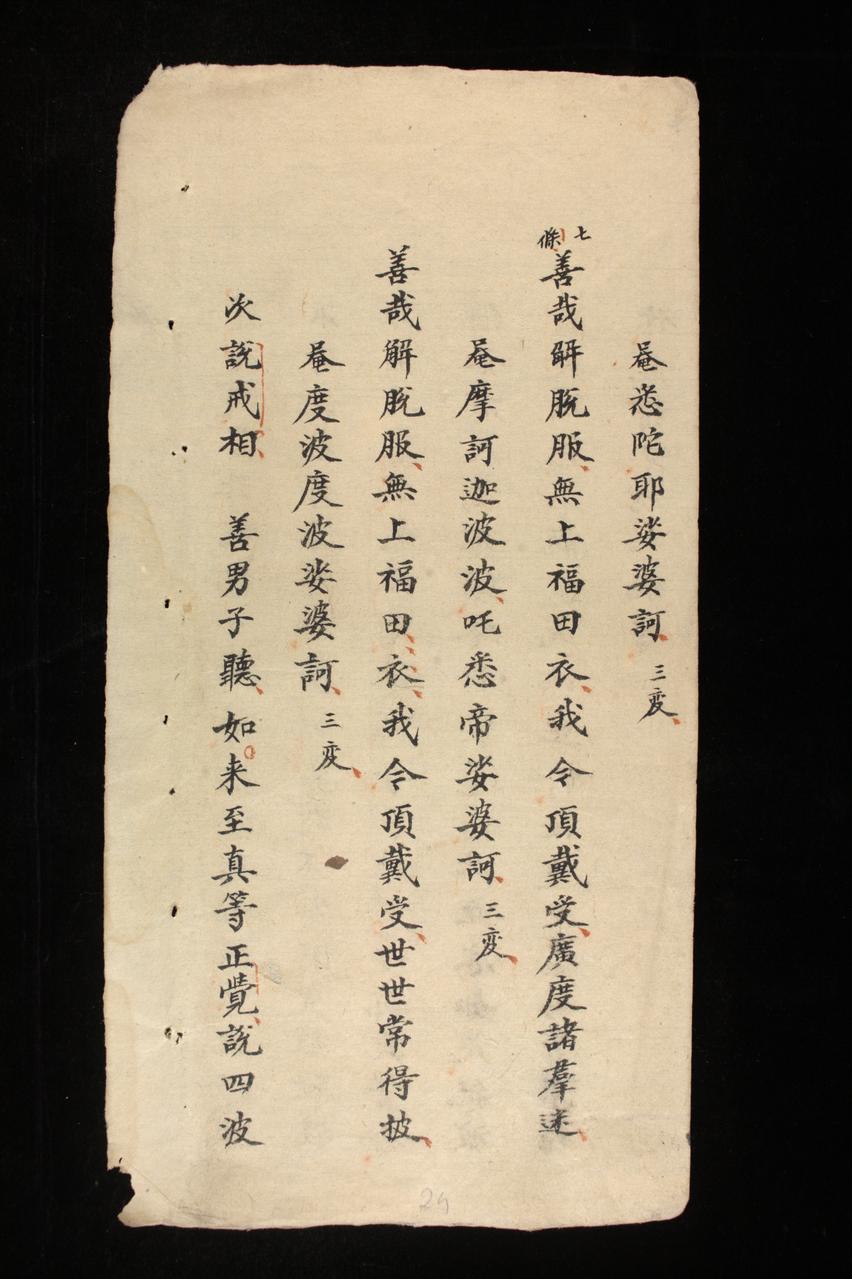 唵悉陀耶娑婆訶 三变
七條 善哉解脱服無上福田衣我今頂戴受廣度諸羣迷
唵摩訶迦波波吒悉帝娑婆訶 三变
善哉解脱服無上福田衣我今頂戴受世世常得披
唵度波度波娑婆訶 三变
次說戒相 善男子聽如来至真等正覺說四波
24